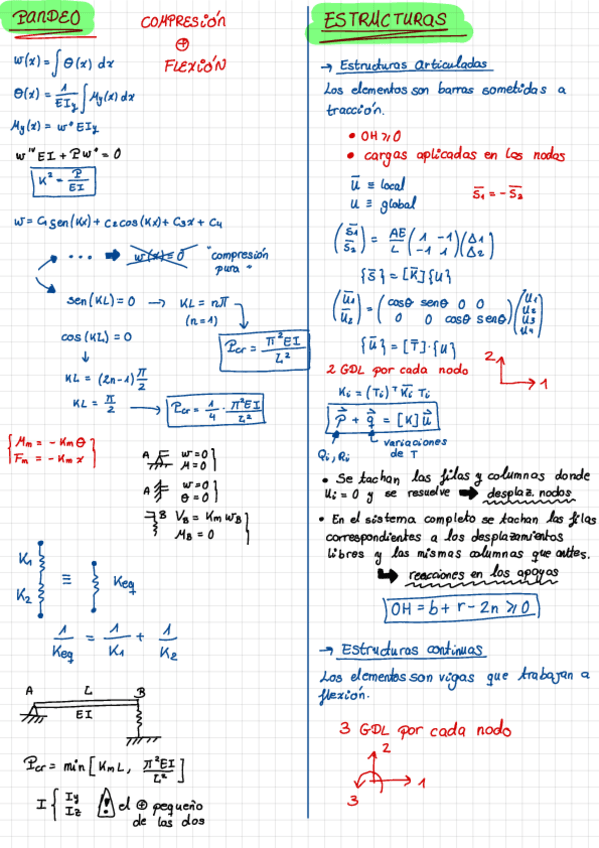 PANDEO
COMPRESIÓN
⊕
FLEXIÓN
w(x) = ∫ θ(x) dx
θ(x) = 1/EIy ∫ My(x) dx
My(x) = w" EIy
w'ᵛ EI + Pw" = 0
K² = P/EI
w = C₁ sen(Kx) + C₂ cos(Kx) + C₃x + C₄
... ➡ w(x) = 0 "compresión
pura"
sen(KL) = 0 → KL = nπ
(n=1)
Pcr = π²EI/L²
cos(KL) = 0
↓
KL = (2n-1) π/2
KL = π/2 → Pcr = 1/4 · π²EI/L²
{ Mm = - Km θ
Fm = - Km x }
A w=0
M=0 }
A w=0
θ=0 }
B VB = Km wB
MB = 0 }
K1
K2
≡ Keq
1/Keq = 1/K1 + 1/K2
A L B
EI
Pcr = min [ KmL, π²EI/L² ]
I { Iy
Iz ⚠ el ⊕ pequeño
de los dos
ESTRUCTURAS
→ Estructuras Articuladas
Los elementos son barras sometidas a
tracción.
• OH ⩾ 0
• cargas aplicadas en los nodos
ū ≡ local
u ≡ global
S̄₁ = - S̄₂
(S̄₁ S̄₂) = AE/L (1 -1 -1 1) (Δ1 Δ2)
{S̄} = [K̄] {u}
(ū₁ ū₂) = (cosθ senθ 0 0 0 0 cosθ senθ) (u₁ u₂ u₃ u₄)
{ū} = [T̄] · {u}
2 GDL por cada nodo
2
1
Ki = (Ti)ᵀ K̄i Ti
P⃗ + q⃗ = [K] u⃗
Qi, Ri
variaciones
de T
• Se tachan las filas y columnas donde
ui = 0 y se resuelve ➡ desplaz. nodos
• En el sistema completo se tachan las filas
correspondientes a los desplazamientos
libres y las mismas columnas que antes.
reacciones en los apoyos
OH = b + r - 2n ⩾ 0
→ Estructuras continuas
Los elementos son vigas que trabajan a
flexión.
3 GDL por cada nodo
2
1
3